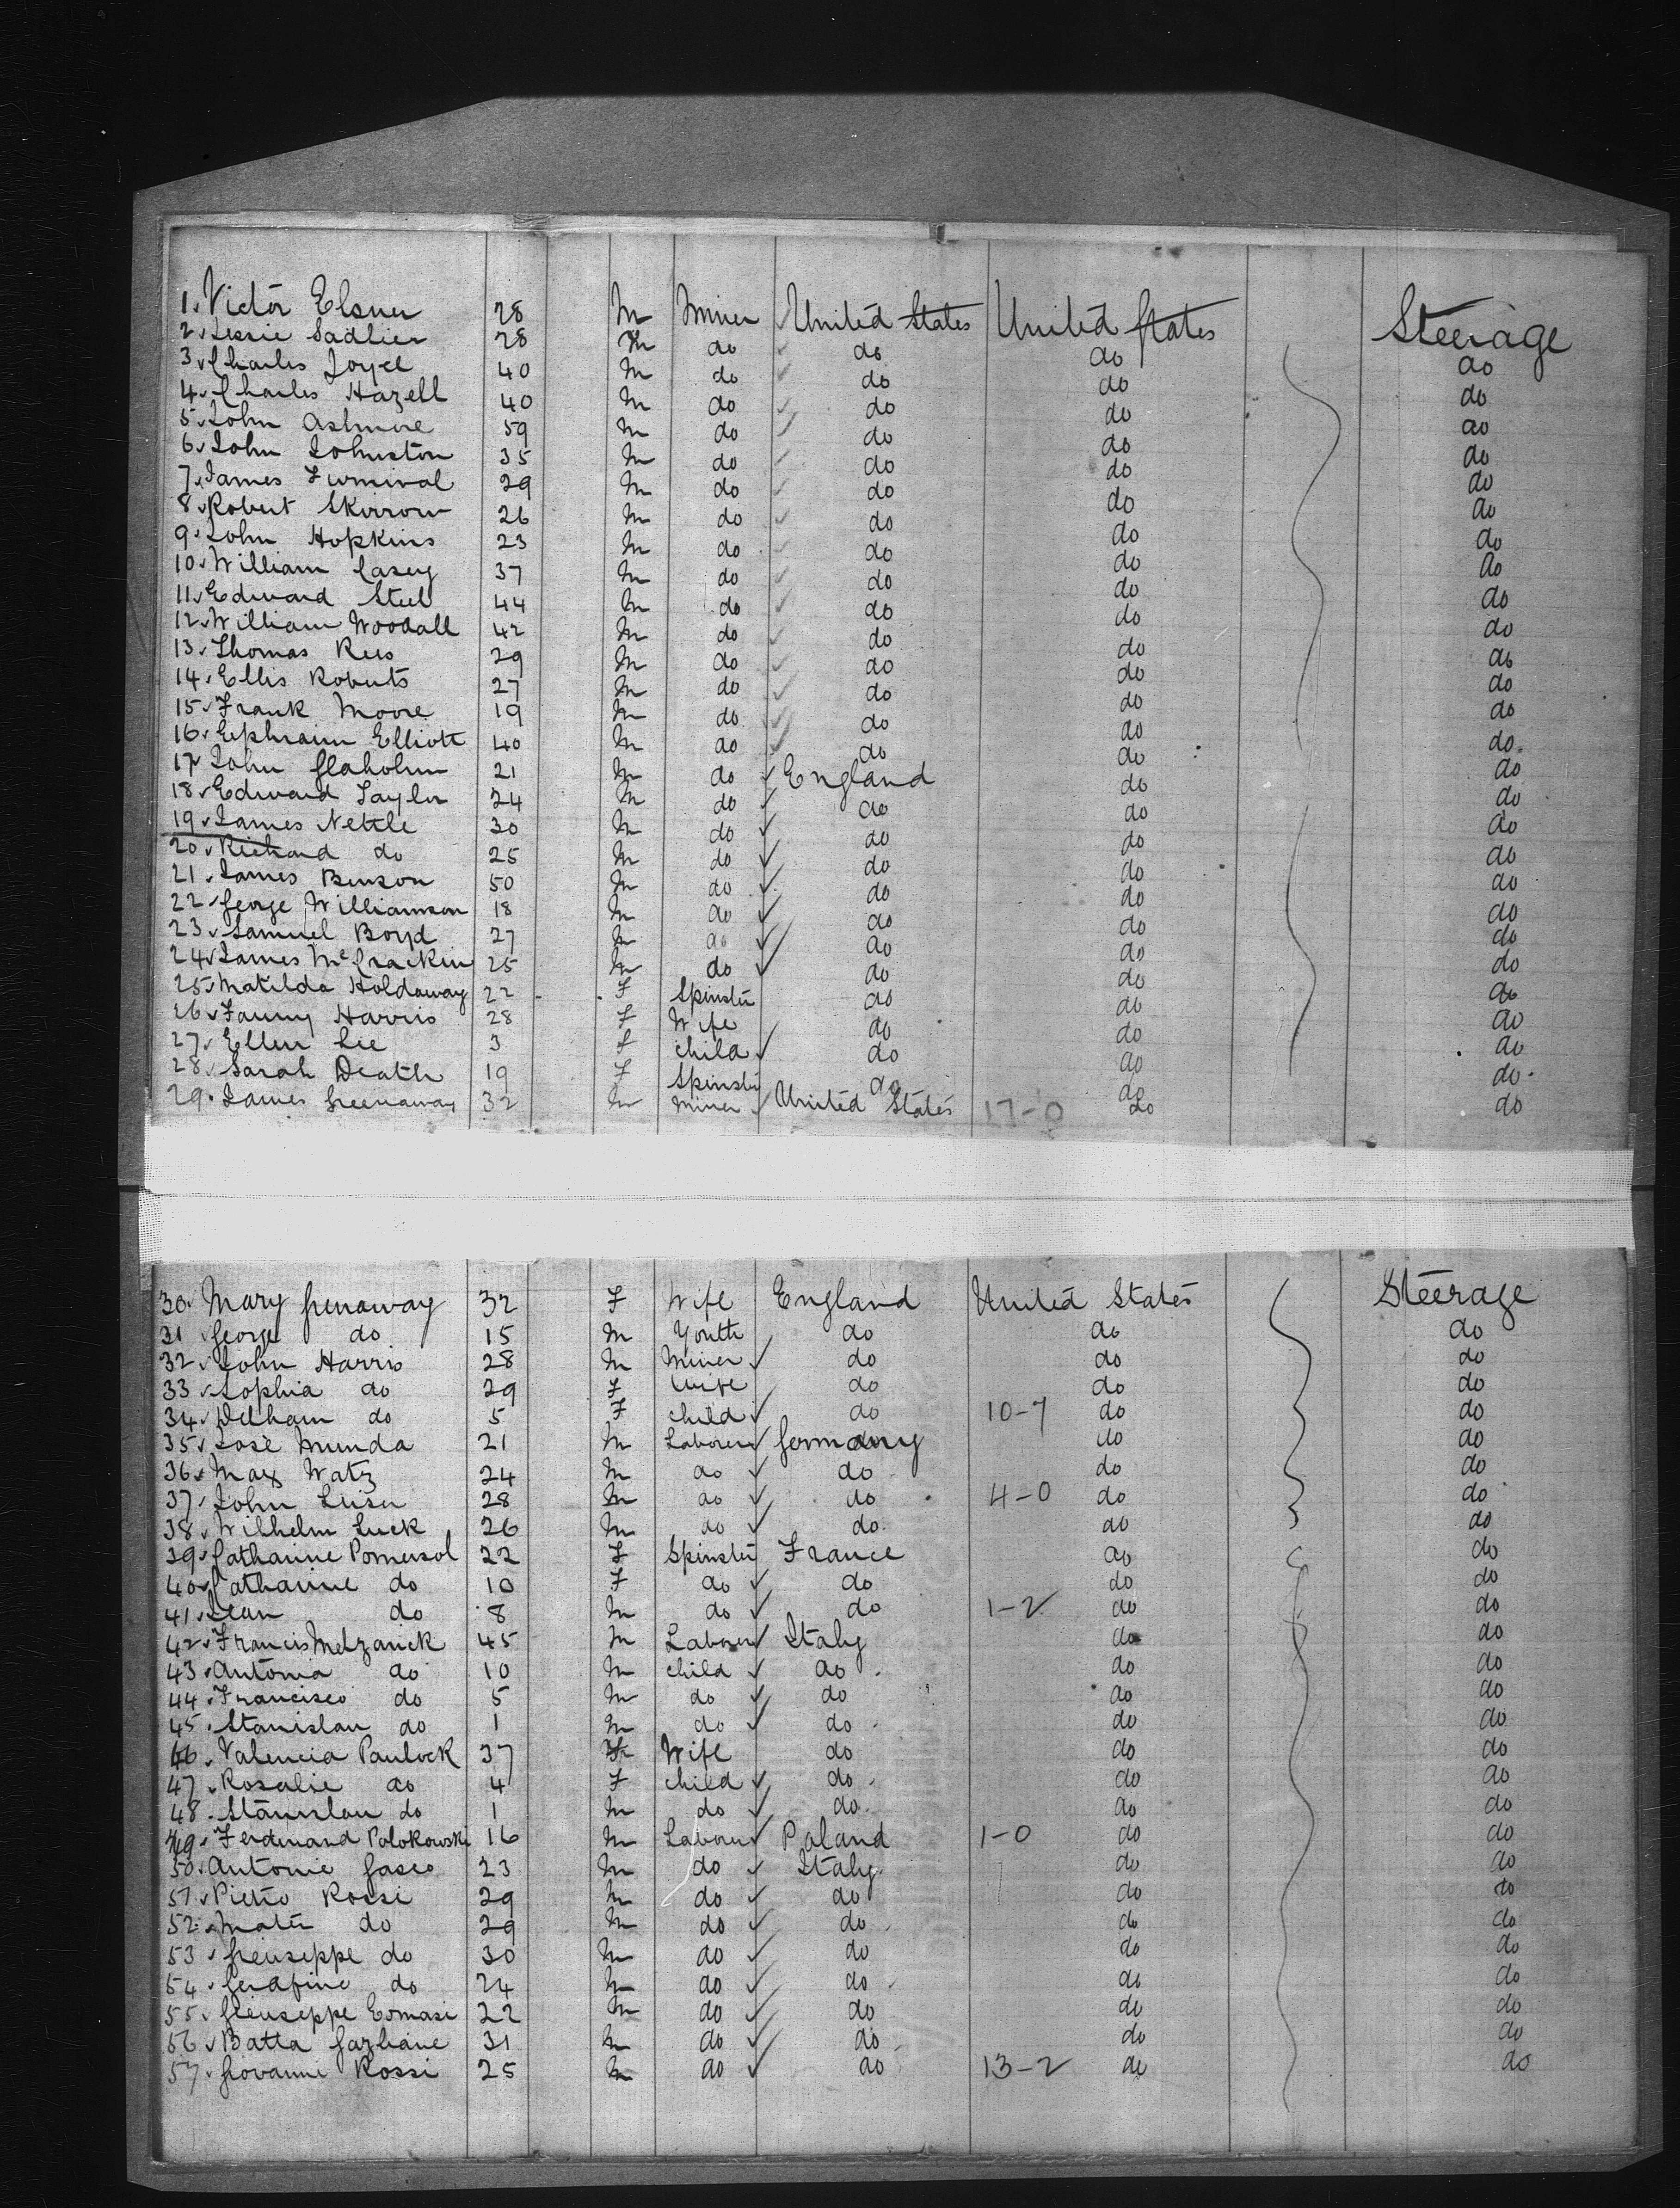 1. Victor Elsner 28 M Miner United States United States Steerage
2. Jessie Sadlier 28 M do do do do
3. Charles Joyce 40 M do do do do
4. Charles Hazell 40 M do do do do
5. John Ashmore 59 M do do do do
6. John Johnston 35 M do do do do
7. James Furnival 29 M do do do do
8. Robert Skirrow 26 M do do do do
9. John Hopkins 23 M do do do do
10. William Casey 37 M do do do do
11. Edward Steel 44 M do do do do
12. William Woodall 42 M do do do do
13. Thomas Rees 29 M do do do do
14. Ellis Roberts 27 M do do do do
15. Frank Moore 19 M do do do do
16. Ephraim Elliott 40 M do do do do
17. John Glaholm 21 M do England do do
18. Edward Taylor 24 M do do do do
19. James Nettle 30 M do do do do
20. Richard do 25 M do do do do
21. James Benson 50 M do do do do
22. George Williamson 18 M do do do do
23. Samuel Boyd 27 M do do do do
24. James McCrackin 25 M do do do do
25. Matilda Holdaway 22 F Spinster do do do
26. Fanny Harris 28 F Wife do do do
27. Ellen Lee 3 F Child do do do
28. Sarah Death 19 F Spinster do do do
29. James Greenaway 32 M Miner United States 17-0 do do
30. Mary Grenaway 32 F Wife England United States Steerage
31 George do 15 M Youth do do do
32. John Harris 28 M Miner do do do
33. Sophia do 29 F Wife do do do
34. do 5 F Child do 10-7 do do
35. José Munda 21 M Laborer Germany do do
36. Max Watz 24 M do do do do
37. John 28 M do do 4-0 do do
38. Wilhelm Luck 26 M do do do do
39. Catharine Pomersol 22 F Spinster France do do
40. Catharine do 10 F do do do do
41. Jean do 8 M do do 1-2 do do
42. Francis Metzanick 45 M Laborer Italy do do
43. Antonia do 10 M Child do do do
44. Francisco do 5 M do do do do
45. Stanislau do 1 M do do do do
46. Valencia Paulock 37 F Wife do do do
47. Rosalie do 4 F Child do do do
48. Stanislau do 1 M do do do do
49. Ferdinand Polokowski 16 M Laborer Poland 1-0 do do
50. Antonie Gasco 23 M do Italy do do
51. Pietro Rossi 29 M do do do do
52. do 29 M do do do do
53. Gieuseppe do 30 M do do do do
54. Serafino do 24 M do do do do
55. Gieuseppe Tomasi 22 M do do do do
56. Batta 31 M do do do do
57. Giovanni Rossi 25 M do do 13-2 do do